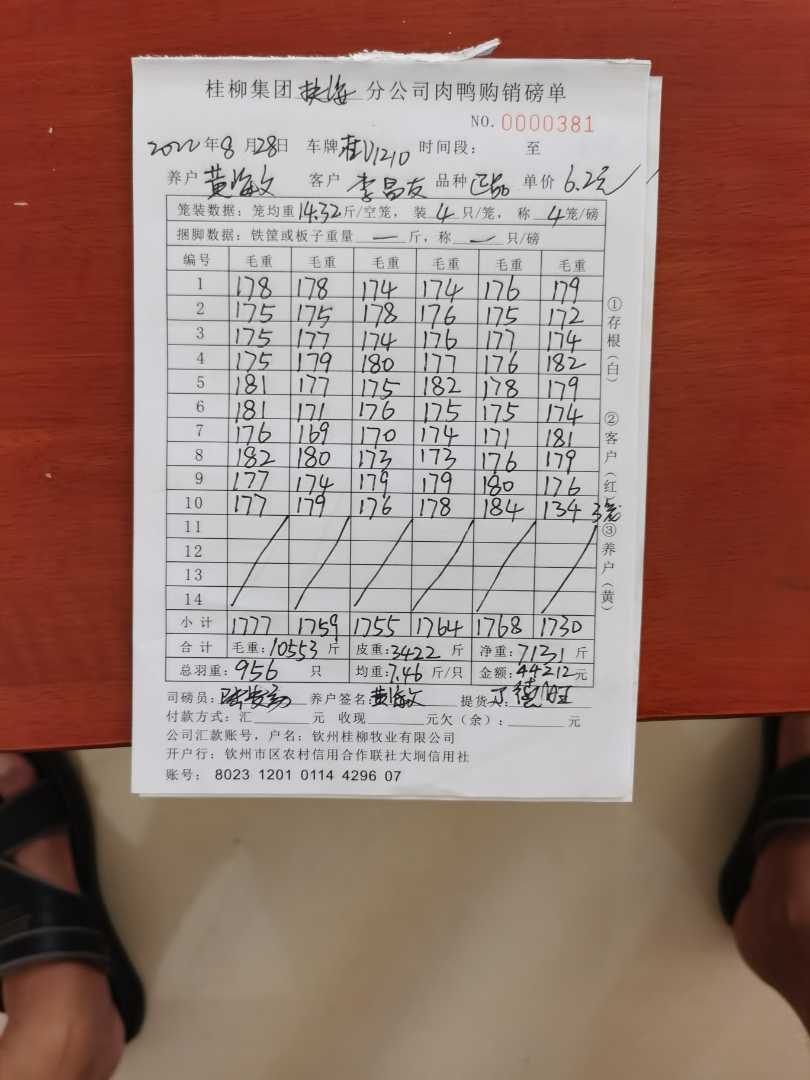 桂柳集团 扶海 分公司肉鸭购销磅单
NO. 0000381
2022年8月28日 车牌 桂V1210 时间段: 至
养户 黄海文 客户 李昌友 品种 正品 单价 6.2元
笼装数据: 笼均重 14.32 斤/空笼, 装 4 只/笼, 称 4 笼/磅
捆脚数据: 铁筐或板子重量 — 斤, 称 — 只/磅
编号 毛重 毛重 毛重 毛重 毛重 毛重
1 178 178 174 174 176 179
2 175 175 178 176 175 172
3 175 177 174 176 177 174
4 175 179 180 177 176 182
5 181 177 175 182 178 179
6 181 171 176 175 175 174
7 176 169 170 174 171 181
8 182 180 173 173 176 179
9 177 174 179 179 180 176
10 177 179 176 178 184 134 3笼
11
12
13
14
小计 1777 1759 1755 1764 1768 1730
合计 毛重: 10553 斤 皮重: 3422 斤 净重: 7131 斤
总羽重: 956 只 均重: 7.46 斤/只 金额: 44212 元
司磅员: 养户签名: 黄海文 提货人:
付款方式: 汇 元 收现 元欠(余): 元
公司汇款账号, 户名: 钦州桂柳牧业有限公司
开户行: 钦州市区农村信用合作联社大垌信用社
账号: 8023 1201 0114 4296 07
①存根(白) ②客户(红) ③养户(黄)